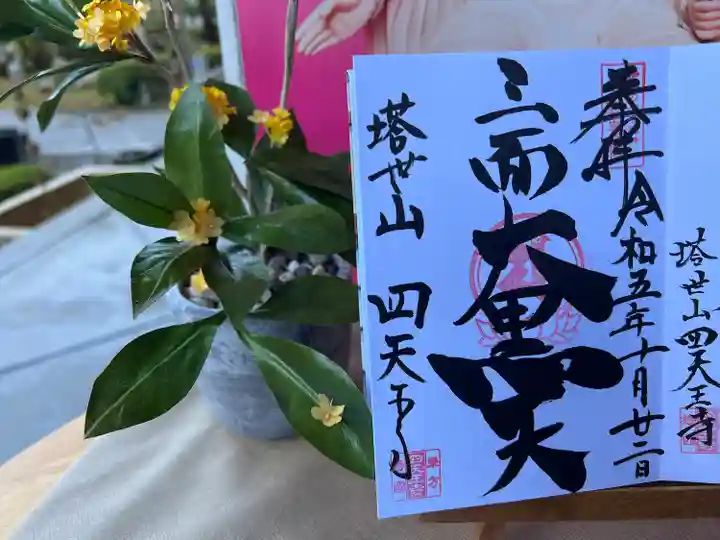 塔世山四天王寺
奉拝 令和五年十月廿二日
三面大黒天
塔世山 四天王寺